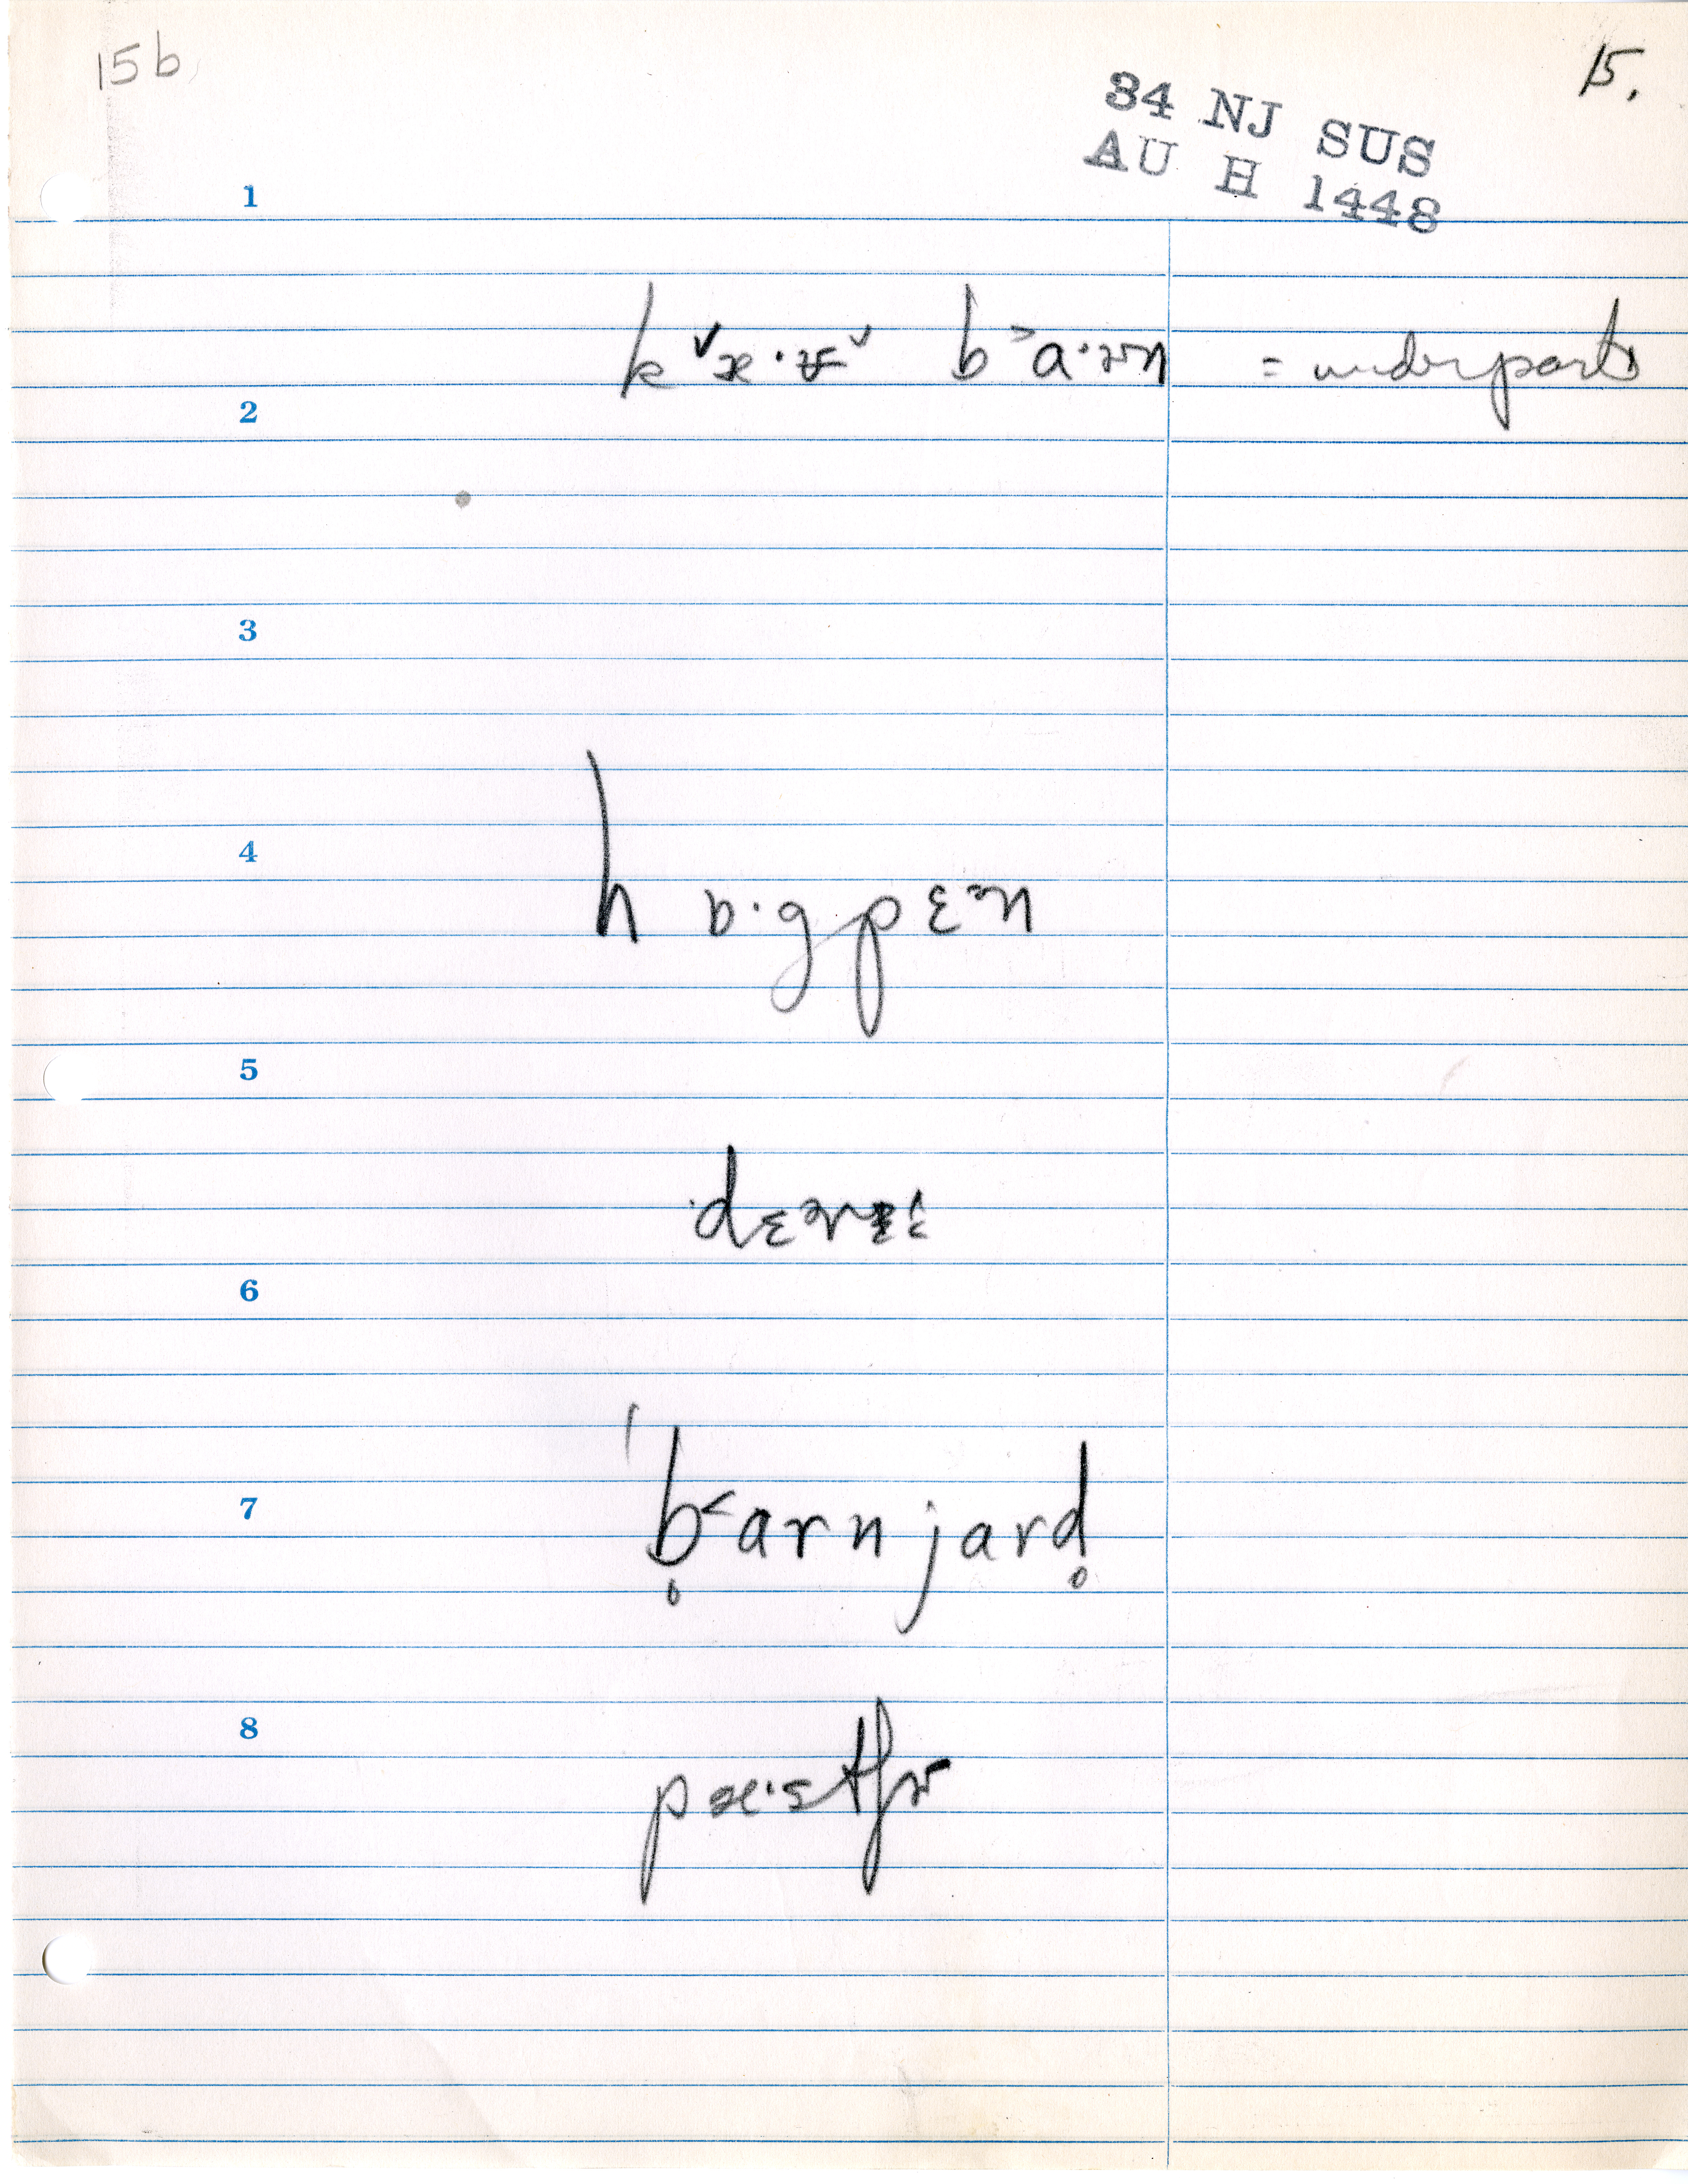 15b
15.
34 NJ SUS
AU H 1448
1
b > a·rn = underparts
2
3
4
hɒ·gpɛᵊn
5
6
7
'b̥˂arnjard̥
8
pæ·stʃɚ